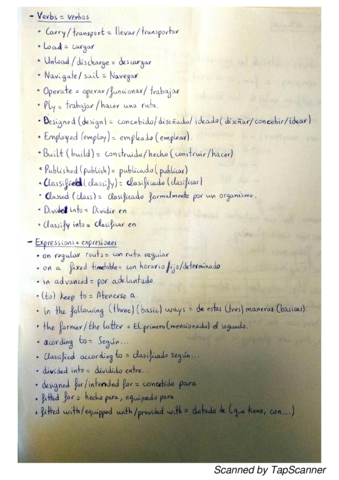 - Verbs = verbos
• Carry/transport = llevar/transportar
• Load = cargar
• Unload/discharge = descargar
• Navigate/sail = Navegar
• Operate = operar/funcionar/trabajar
• Ply = trabajar/hacer una ruta.
• Designed (design) = concebido/diseñado/ideado (diseñar/concebir/idear)
• Employed (employ) = empleado (emplear).
• Built (build) = construido/hecho (construir/hacer)
• Published (publish) = publicado (publicar)
• Classified (classify) = clasificado (clasificar)
• Classed (class) = clasificado formalmente por un organismo.
• Divided into = Dividir en
• Classify into = Clasificar en
- Expressions = expresiones
• on regular routs = con ruta regular
• on a fixed timetable = con horario fijo/determinado
• in advanced = por adelantado
• (to) keep to = Atenerse a
• in the following (three) (basic) ways = de estas (tres) maneras (basicas)
• the former/the latter = El primero (mencionado) el segundo.
• acording to = Según...
• Classified according to = clasificado según...
• divided into = dividido entre.
• designed for/intended for = concebido para
• fitted for = hecho para, equipado para
• fitted with/equipped with/provided with = dotado de (que tiene, con...)
Scanned by TapScanner